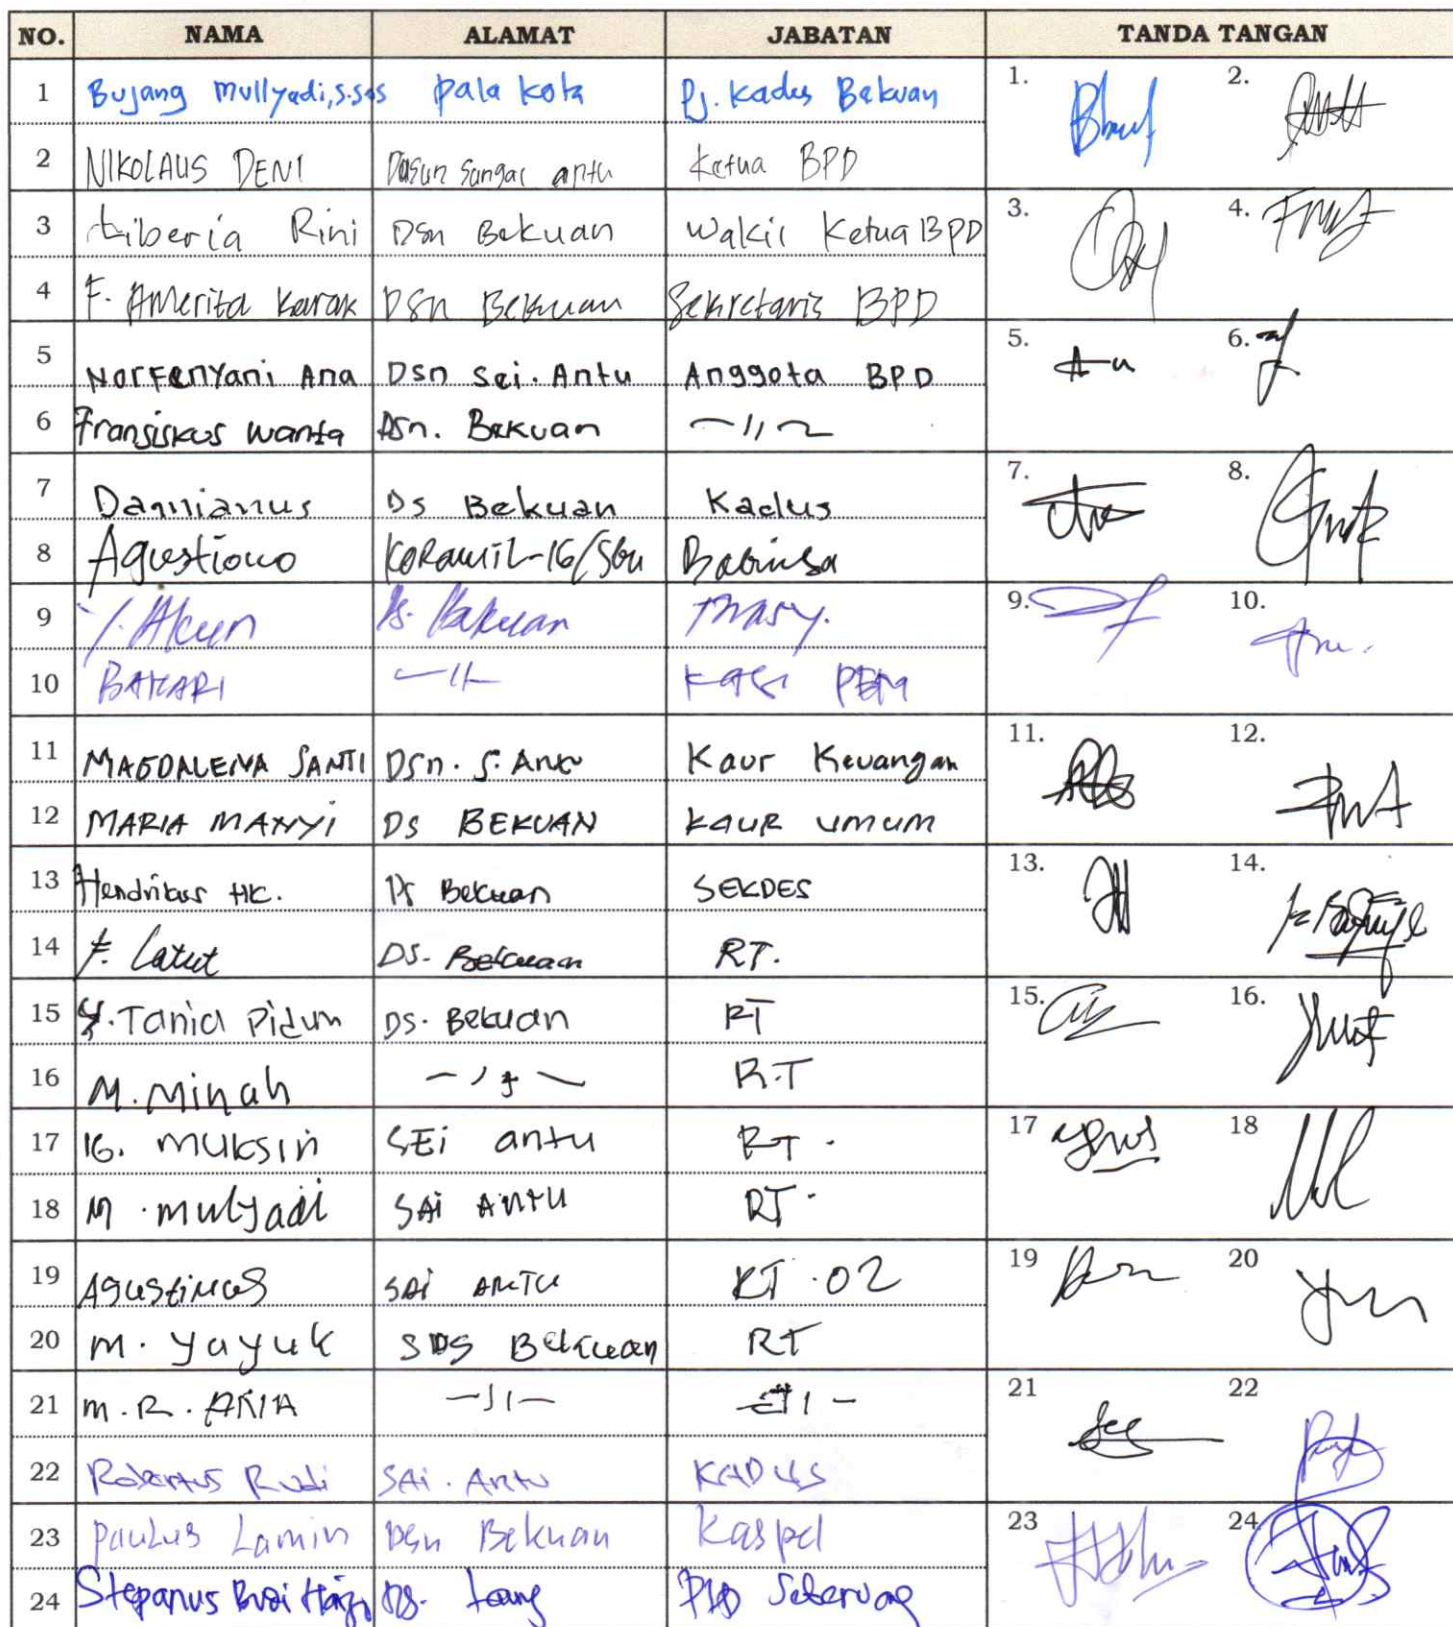 NO. NAMA ALAMAT JABATAN TANDA TANGAN
1 Bujang Mullyadi, S.Sos Pala Kota Pj. Kades Bekuan 1. 2.
2 NIKOLAUS DENI Dusun Sungai antu Ketua BPD
3 Liberia Rini Dsn Bekuan Wakil Ketua BPD 3. 4.
4 F. Amerita Karak Dsn Bekuan Sekretaris BPD
5 Norfenyani Ana Dsn Sei. Antu Anggota BPD 5. 6.
6 Fransiskus Wanta Dsn. Bekuan -11-
7 Damianus Ds Bekuan Kadus 7. 8.
8 Agustiowo KORAMIL-16/Sbu Babinsa
9 Y. Akun Ds. Bakuan Masy. 9. 10.
10 BAKARI -11- KASI PEM
11 MAGDALENA SANTI Dsn. S. Antu Kaur Keuangan 11. 12.
12 MARIA MANYI DS BEKUAN KAUR UMUM
13 Hendrikus HK. Ds Bekuan SEKDES 13. 14.
14 F. Latut DS. Bekuan RT.
15 Y. Tania Pidum DS. Bekuan RT 15. 16.
16 M. Minah -11- R.T
17 IG. MUKSIN SEI antu RT. 17 18
18 M. mulyadi SAI ANTU RT.
19 Agustinus SAI ANTU RT. 02 19 20
20 M. Yayuk SDS Bekuan RT
21 M.R. ARIA -11- -11- 21 22
22 Robertus Rudi SAI. Antu KADUS
23 Paulus Lamin Dsn Bekuan Kaspel 23 24
24 Stepanus Budi Ds. PLD Seberuang